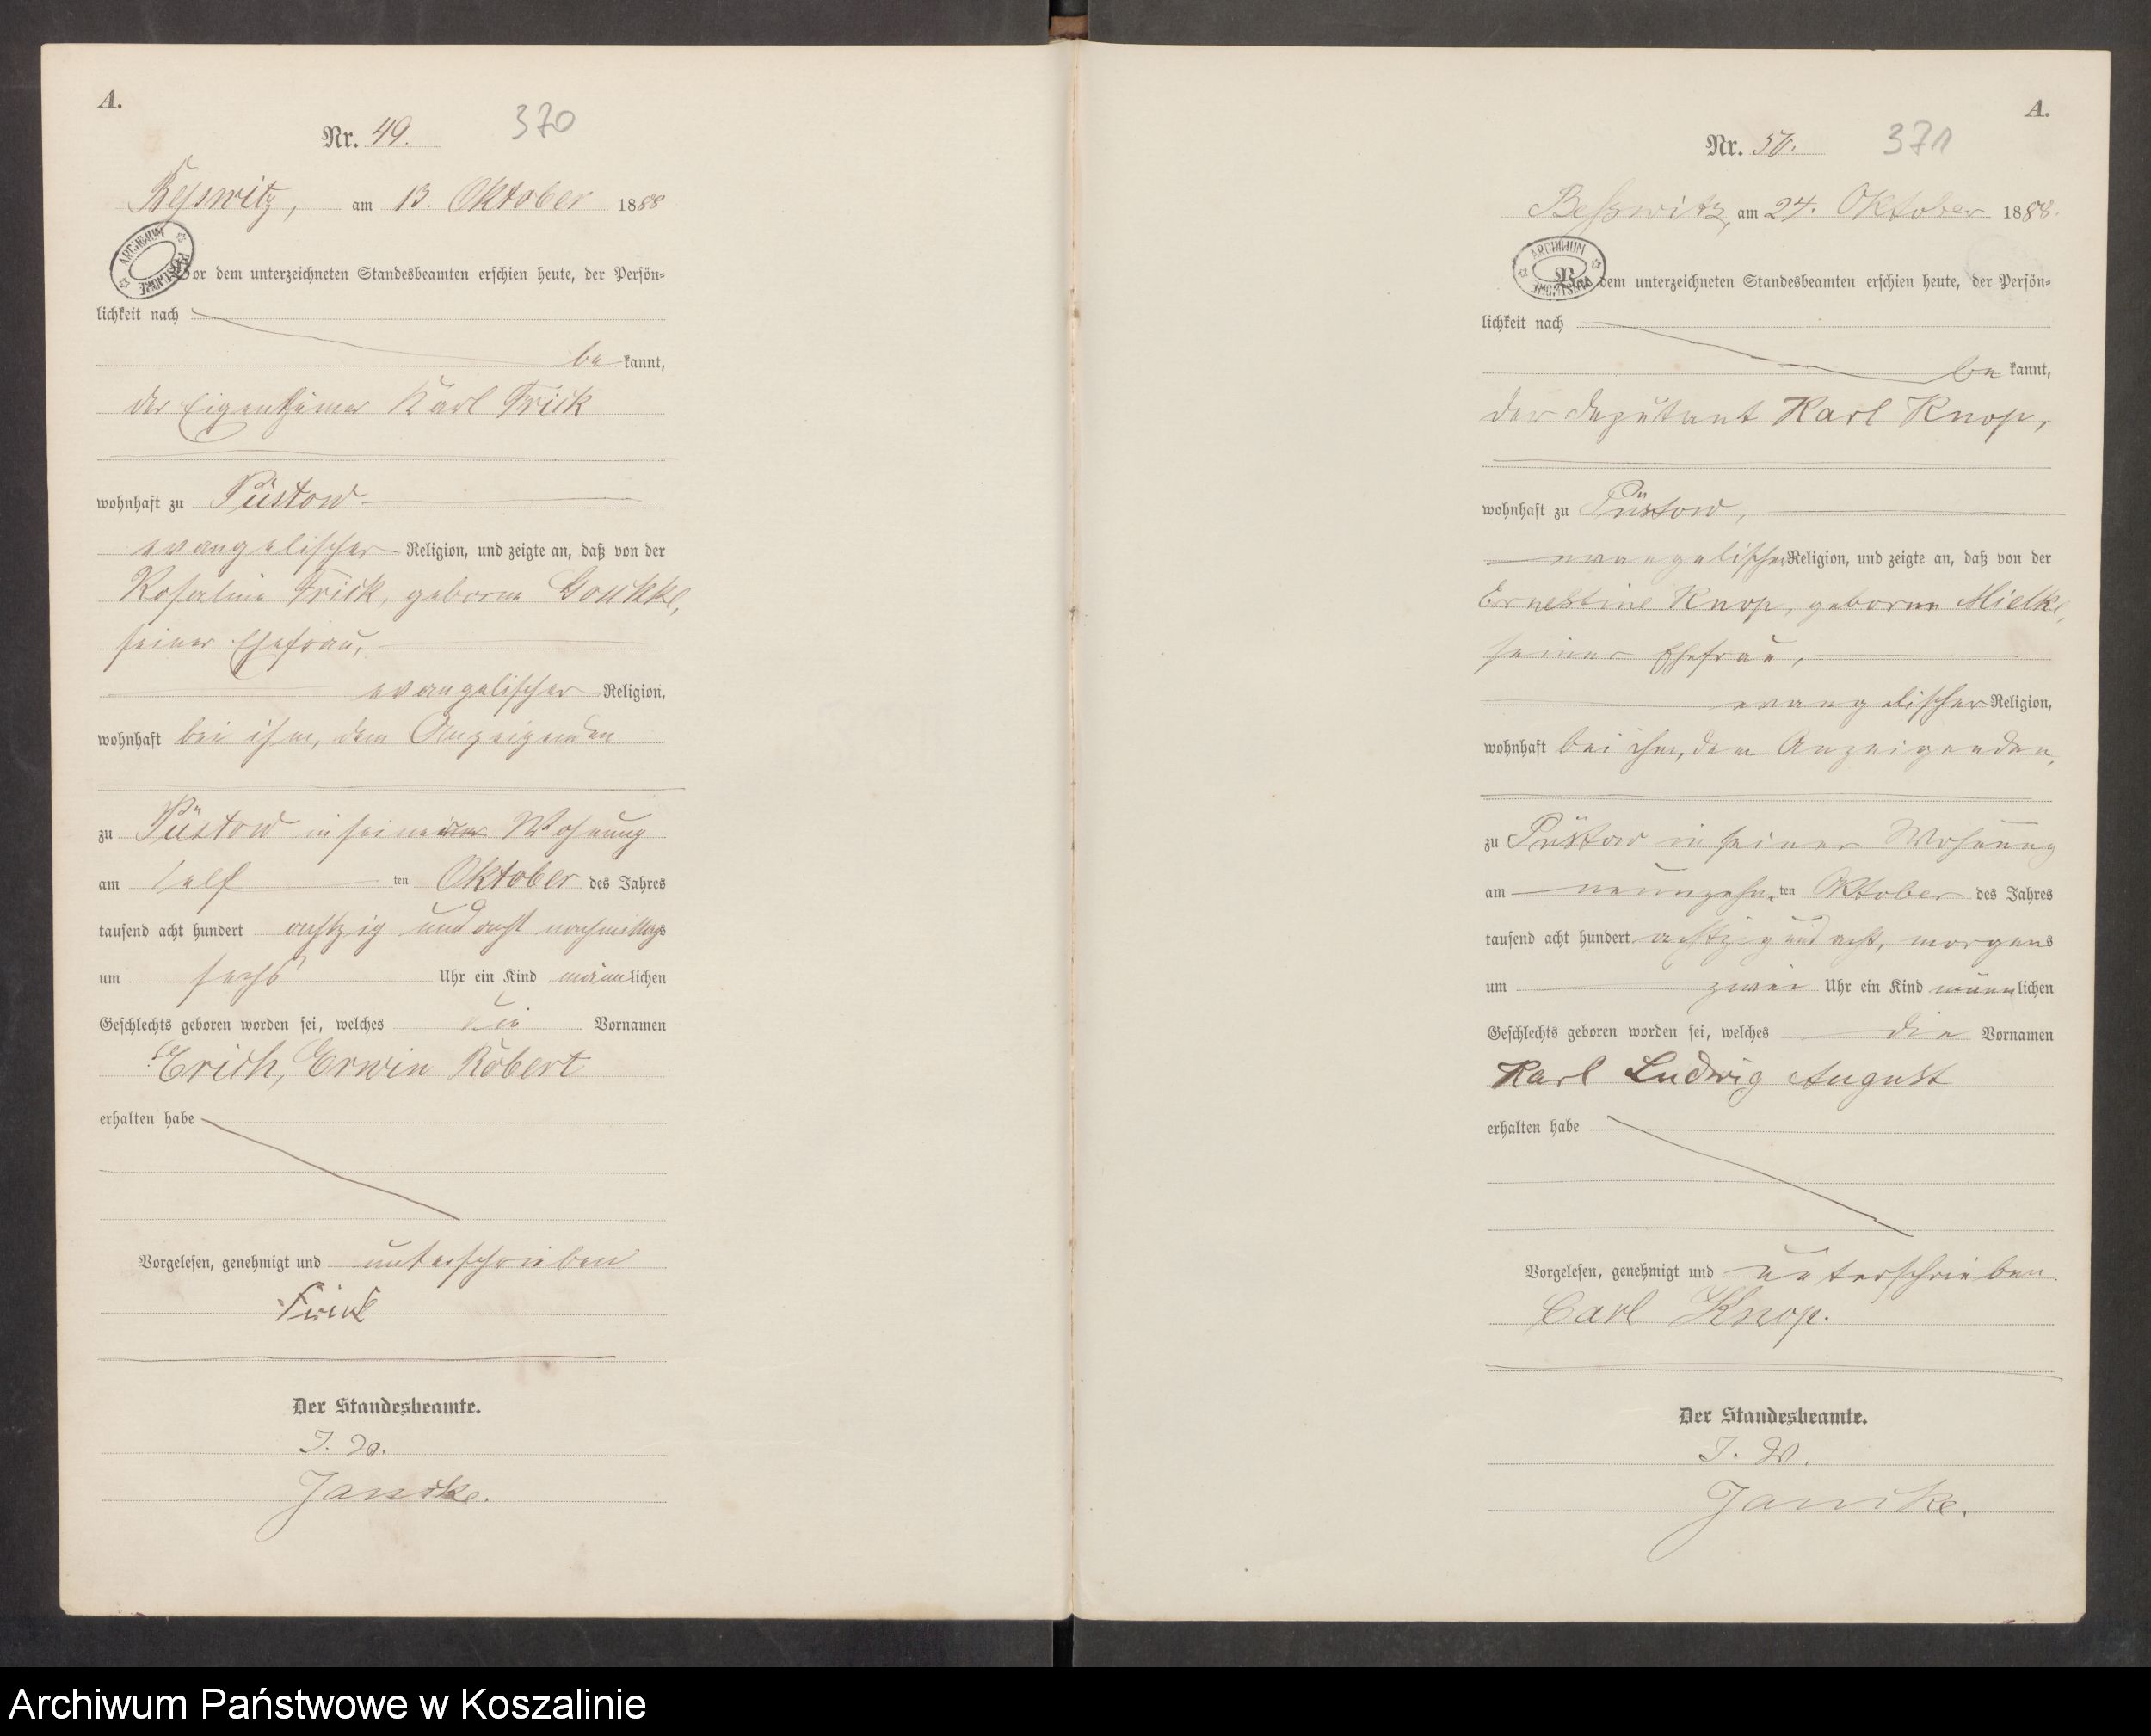 A.
Nr. 49.
370
Besswitz, am 13. Oktober 1888
ARCHIWUM PAŃSTWOWE
Vor dem unterzeichneten Standesbeamten erschien heute, der Persön-
lichkeit nach
be kannt,
der Eigenthümer Karl Frick
wohnhaft zu Püstow
evangelischer Religion, und zeigte an, daß von der
Rosaline Frick, geborne
seiner Ehefrau,
evangelischer Religion,
wohnhaft bei ihm, dem Anzeigenden
zu Püstow in seiner Wohnung
am elf ten Oktober des Jahres
tausend acht hundert achtzig und acht nachmittags
um sechs Uhr ein Kind männlichen
Geschlechts geboren worden sei, welches die Vornamen
Erich, Erwin Robert
erhalten habe
Vorgelesen, genehmigt und unterschrieben
Frick
Der Standesbeamte.
J. V.
Janicke.
A.
Nr. 50.
371
Besswitz, am 24. Oktober 1888.
ARCHIWUM PAŃSTWOWE
Vor dem unterzeichneten Standesbeamten erschien heute, der Persön-
lichkeit nach
be kannt,
der Deputant Karl Knop,
wohnhaft zu Püstow,
evangelischer Religion, und zeigte an, daß von der
Ernestine Knop, geborne Mielke,
seiner Ehefrau,
evangelischer Religion,
wohnhaft bei ihm, dem Anzeigenden,
zu Püstow in seiner Wohnung
am neunzehn ten Oktober des Jahres
tausend acht hundert achtzig und acht, morgens
um zwei Uhr ein Kind männlichen
Geschlechts geboren worden sei, welches die Vornamen
Karl Ludwig August
erhalten habe
Vorgelesen, genehmigt und unterschrieben.
Carl Knop.
Der Standesbeamte.
J. V.
Janicke.
Archiwum Państwowe w Koszalinie